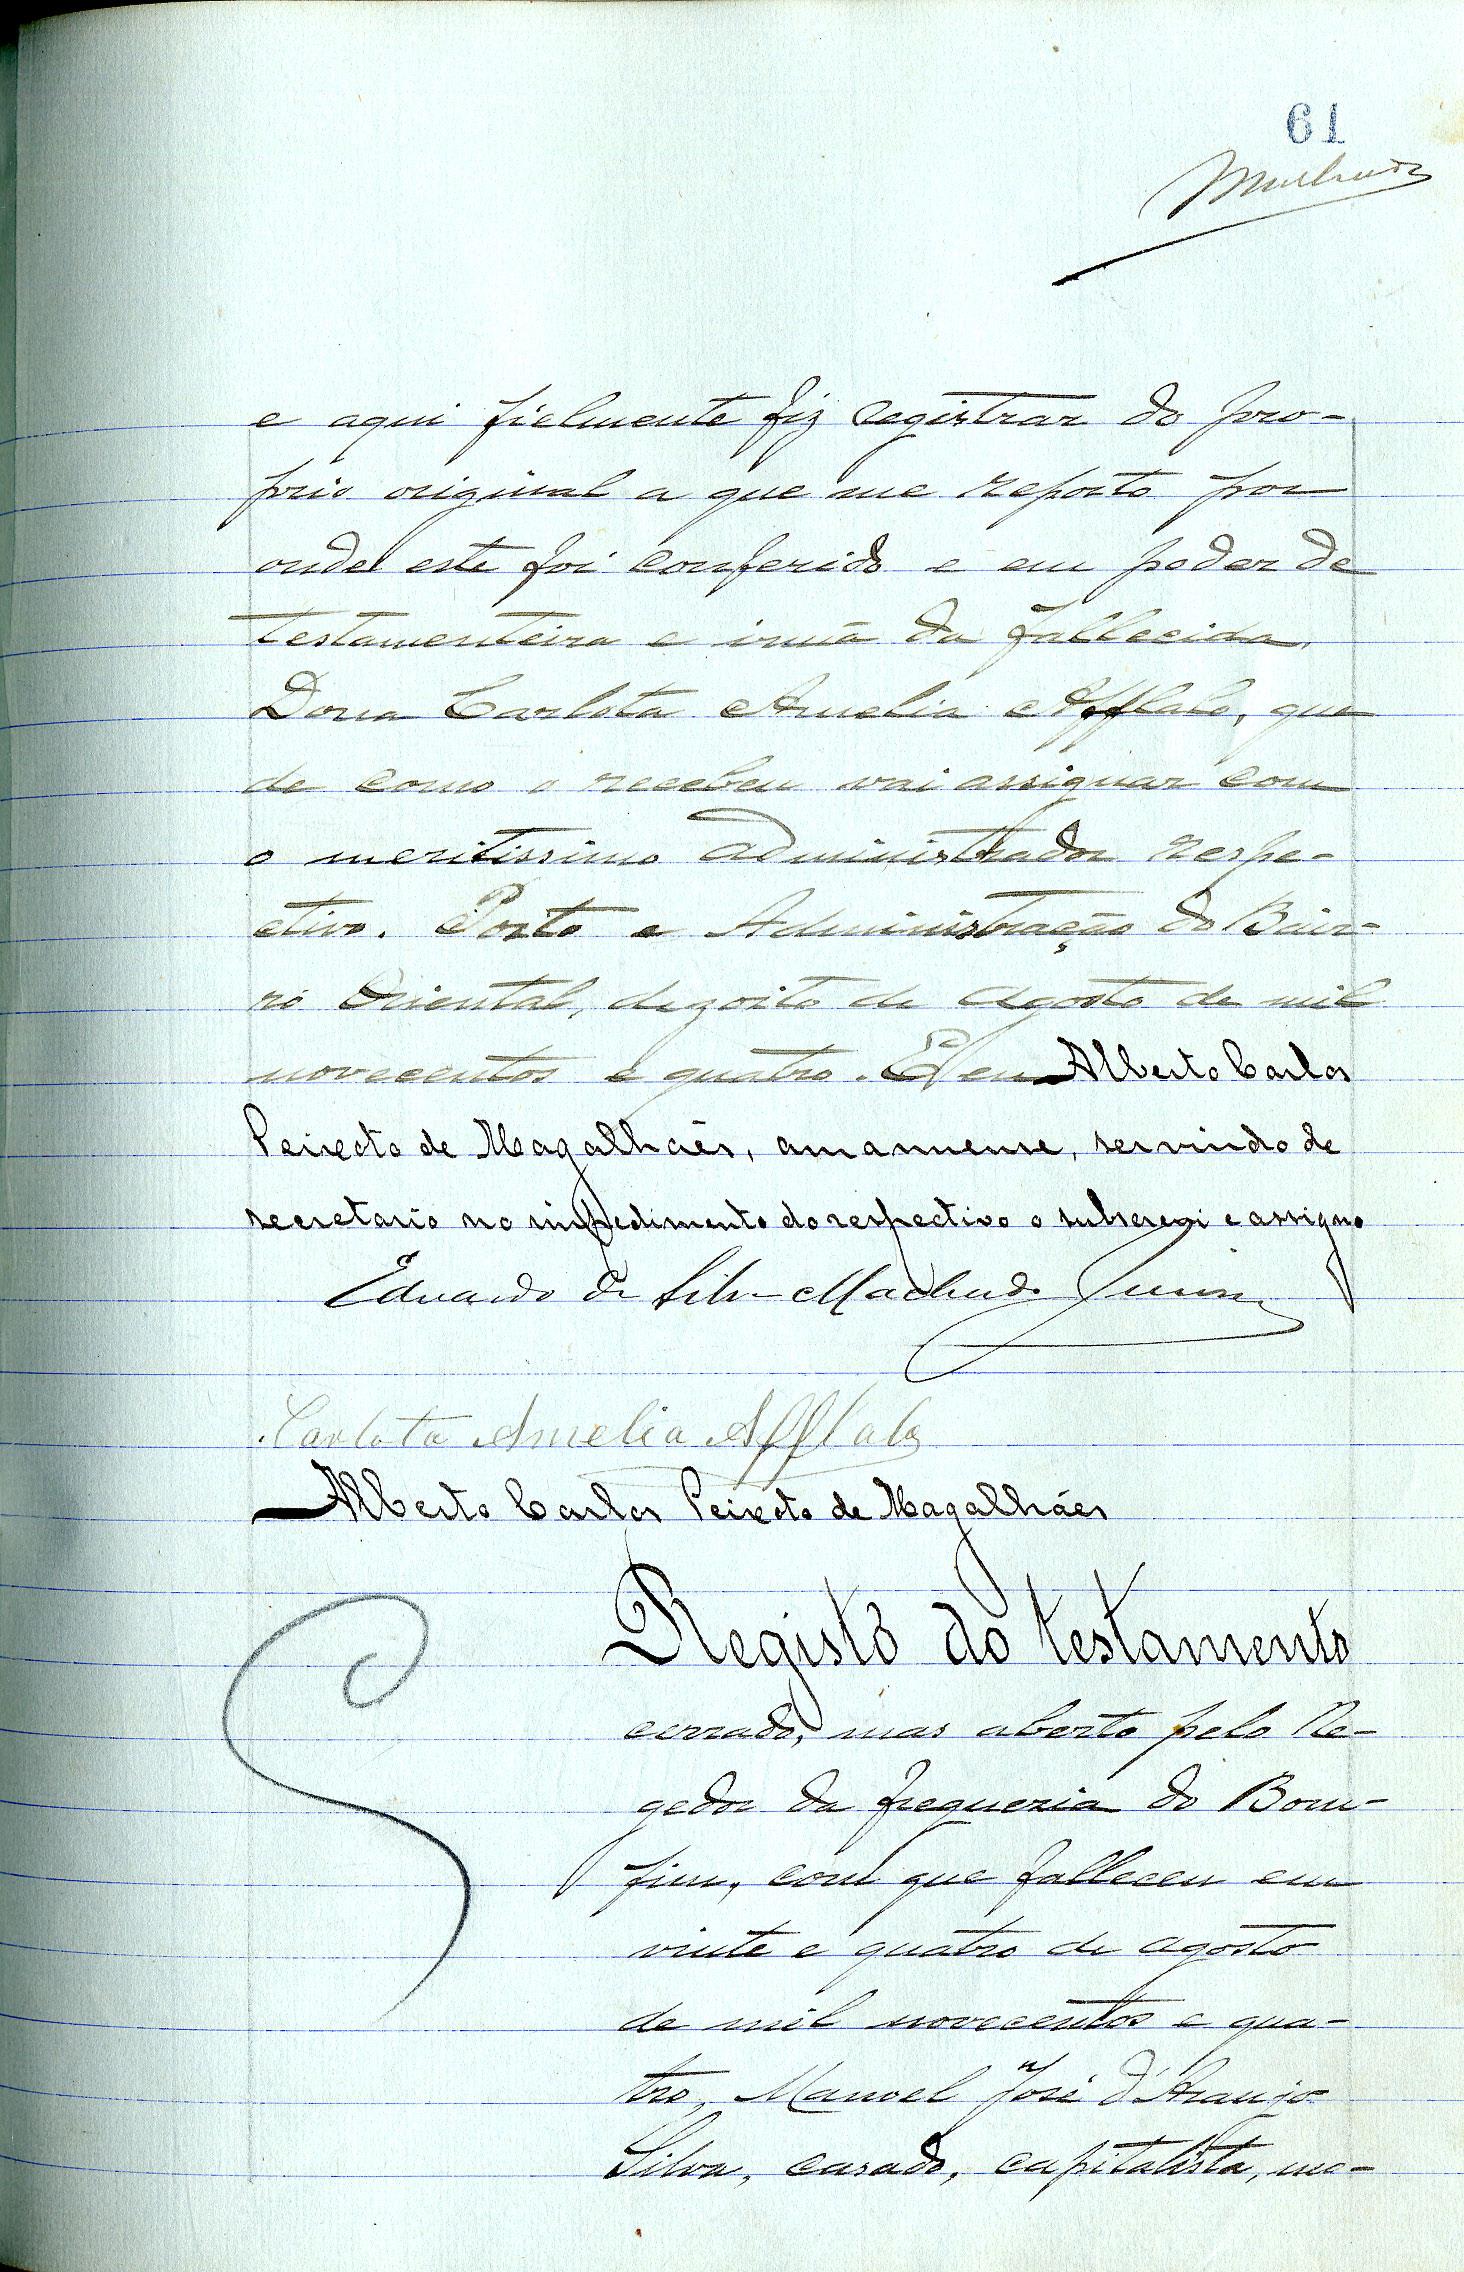 61
Machado
e aqui fielmente fiz registrar do pro-
prio original a que me reporto por
onde este foi conferido e em poder da
testamenteira e irmã da fallecida,
Dona Carlota Amelia Afflalo, que
de como o recebeu vai assignar com
o meritissimo administrador respe-
ctivo. Porto e Administração do Bair-
ro Oriental, dezoito de Agosto de mil
novecentos e quatro. E eu Alberto Carlos
Peixoto de Magalhães, amanuense, servindo de
secretario no impedimento do respectivo o subscrevi e assigno
Eduardo da Silva Machado Junior
Carlota Amelia Afflalo
Alberto Carlos Peixoto de Magalhães
Registo do testamento
cerrado, mas aberto pelo Re-
gedor da freguezia do Bom-
fim, com que falleceu em
vinte e quatro de agosto
de mil novecentos e qua-
tro, Manoel José d'Araujo
Silva, casado, capitalista, mo-